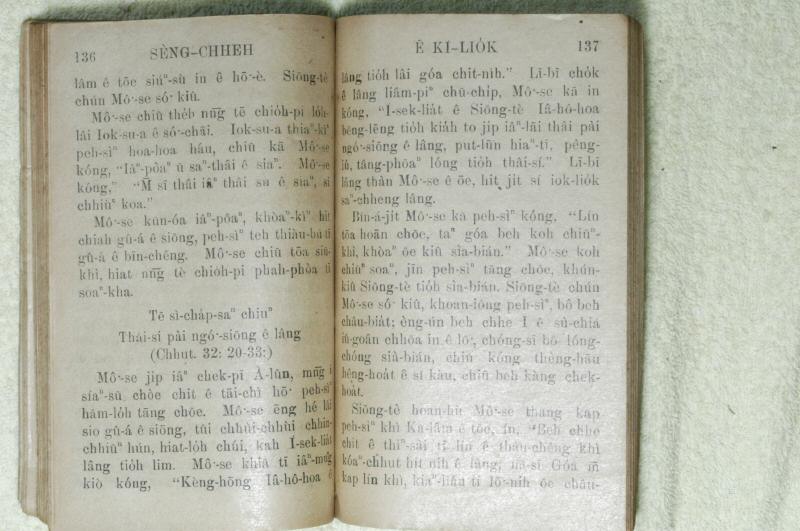 136 SÈNG-CHHEH
lâm ê tōe siúⁿ-sù in ê hō·-è. Siōng-tè
chún Mô·-se só· kiû.
Mô·-se chiū thèh nn̄g tè chióh-pi lóh-
lâi Iok-su-a ê só·-chāi. Iok-su-a thiaⁿ-kìⁿ
peh-sìⁿ hoa-hoa háu, chiū kā Mô·-se
kóng, “Iâⁿ-pôaⁿ ū saⁿ-thâi ê siaⁿ. Mô·-se
kóng,” “M̄ sī thâi iâⁿ thâi su ê siaⁿ, sī
chhiùⁿ koa.”
Mô·-se kūn-óa iâⁿ-pôaⁿ, khòaⁿ-kìⁿ hit
chiah gû-á ê siōng, peh-sìⁿ teh thiàu-bú tī
gû-á ê bīn-chêng. Mô·-se chiū tōa siū-
khì, hiat nn̄g tè chióh-pi phah-phòa tī
soaⁿ-kha.
Tē sì-cháp-saⁿ chiuⁿ
Thâi-sí pài ngó·-siōng ê lâng
(Chhut. 32: 20-33:)
Mô·-se jip iâⁿ chek-pī A-lûn, mn̄g i
síaⁿ-sū chòe chit ê tāi-chì hō· peh-sìⁿ
hām-lóh tāng chōe. Mô·-se ēng hé lâi
sio gû-á ê siōng, tùi chhùi-chhùi chhin-
chhiūⁿ hún, hiat-lóh chúi, kah Í-sek-liát
lâng tióh lim. Mô·-se khiā tī iâⁿ-mn̂g
kiò kóng, “Kèng-hōng Iâ-hô-hoa ê
Ê KÌ-LIÓK 137
lâng tióh lâi góa chit-nih.” Lī-bī chók
ê lâng liâm-piⁿ chū-chip, Mô·-se kā in
kóng, “Í-sek-liát ê Siōng-tè Iâ-hô-hoa
bēng-lēng tióh kiáh to jip iâⁿ-lāi thâi pài
ngó·-siōng ê lâng, put-lūn hiaⁿ-tī, pêng-
iú, tâng-phōaⁿ lóng tióh thâi-sí.” Lī-bī
lâng thàn Mô·-se ê ōe, hit jit sí iok-liók
saⁿ-chheng lâng.
Bîn-á-jit Mô·-se kā peh-sìⁿ kóng, “Lín
tōa hoān chōe, taⁿ góa beh koh chiūⁿ-
khì, khòaⁿ ōe kiû sìa-bián.” Mô·-se koh
chiūⁿ soaⁿ, jīn peh-sìⁿ tāng chōe, khún-
kiû Siōng-tè tióh sìa-bián. Siōng-tè chún
Mô·-se só· kiû, khoan-iông peh-sìⁿ, bô beh
châu-biát; èng-ún beh chhe I ê sù-chiá
iû-goân chhōa in ê lō·, chóng-sī bô lóng-
chóng sià-bián, chiū kóng thèng-hāu
hêng-hoát ê sî kàu, chiū beh kàng chek-
hoát.
Siōng-tè hoan-hù Mô·-se thang kap
peh-sìⁿ khì Ka-lâm ê tōe, ín, “Beh chhe
chit ê thiⁿ-sài tī lín ê thâu-chêng khì
kóaⁿ-chhut hit nih ê lâng; nā-sī Góa m̄
kap lín khì, kiaⁿ-liáu tī lō·-nih ōe châu-